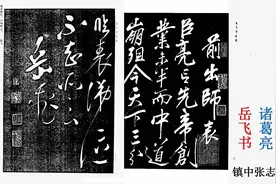 前出師表
臣亮言先帝創
業未半而中道
崩殂今天下三分
臨表涕泣
不知所云
岳飛
诸葛亮
岳飞书
镇中张志